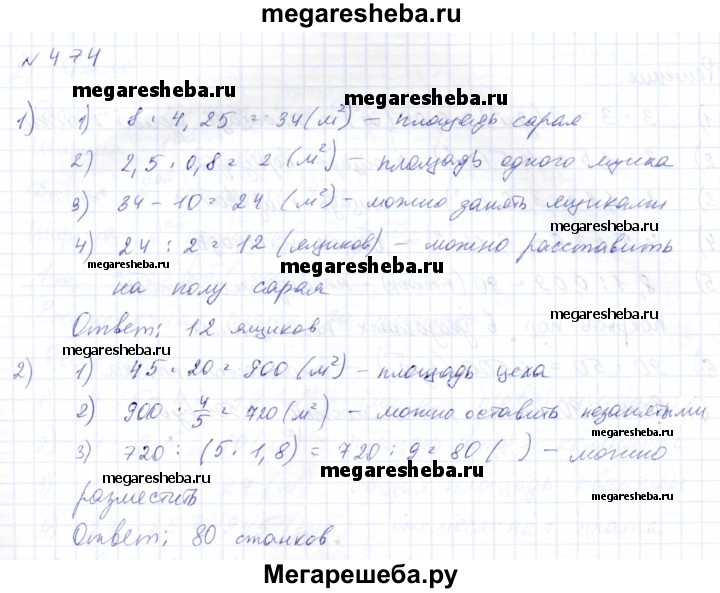 megaresheba.ru
N 474
megaresheba.ru
megaresheba.ru
1) 1) 8 · 4,25 = 34 (м²) – площадь сарая
2) 2,5 · 0,8 = 2 (м²) – площадь одного ящика
3) 34 – 10 = 24 (м²) - можно занять ящиками
megaresheba.ru
4) 24 : 2 = 12 (ящиков) – можно расставить
megaresheba.ru
megaresheba.ru
на полу сарая
megaresheba.ru
Ответ: 12 ящиков
megaresheba.ru
megaresheba.ru
2) 1) 45 · 20 = 900 (м²) - площадь цеха
2) 900 · 4/5 = 720 (м²) – можно оставить незанятыми
megaresheba.ru
3) 720 : (5 · 1,8) = 720 : 9 = 80 ( ) – можно
megaresheba.ru
megaresheba.ru
разместить
megaresheba.ru
Ответ: 80 станков.
Мегарешеба.ру